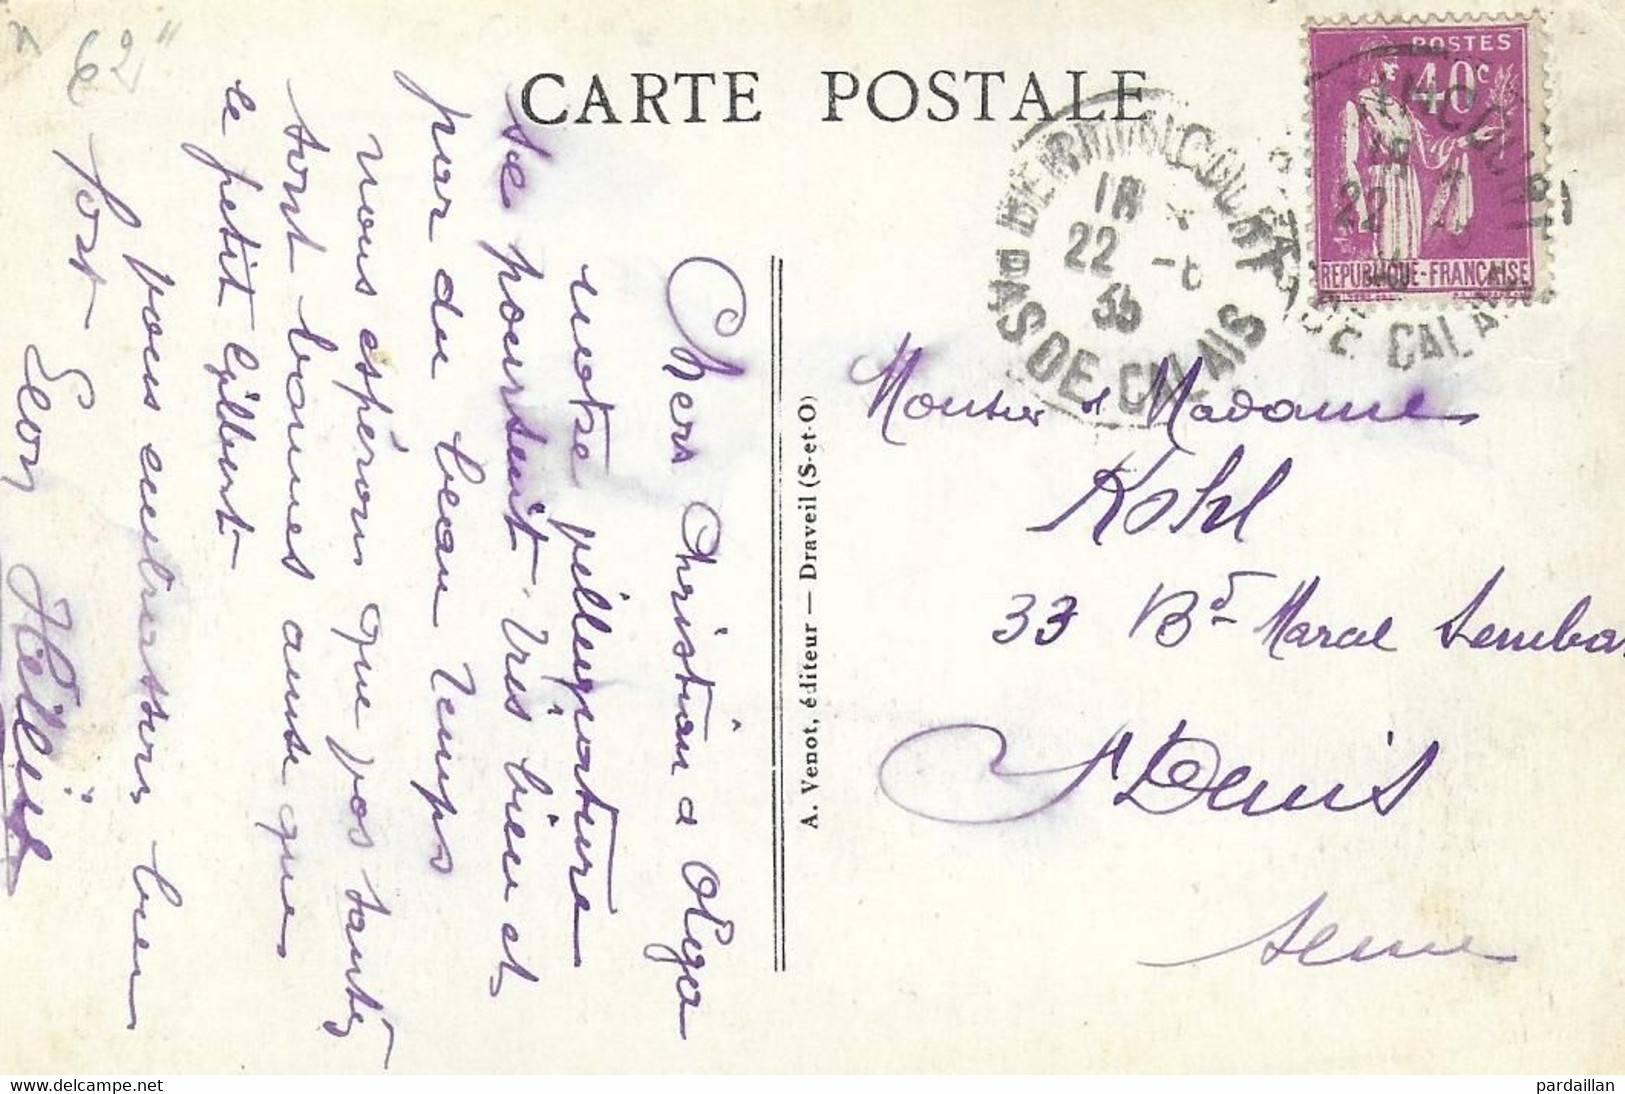 62
CARTE POSTALE
POSTES
40c
REPUBLIQUE-FRANCAISE
18
22 -6
35
PAS DE CALAIS
Chers Christian et Olga
notre villégiature
se poursuit très bien et
par du beau temps
nous espérons que vos santés
sont bonnes ainsi que
le petit Gilbert
vous embrassons bien
fort Léon Hélène
A. Venot, éditeur — Draveil (S-et-O)
Monsieur et Madame
Kohl
33 Bd Marcel Semba
St Denis
Seine
www.delcampe.net
pardaillan